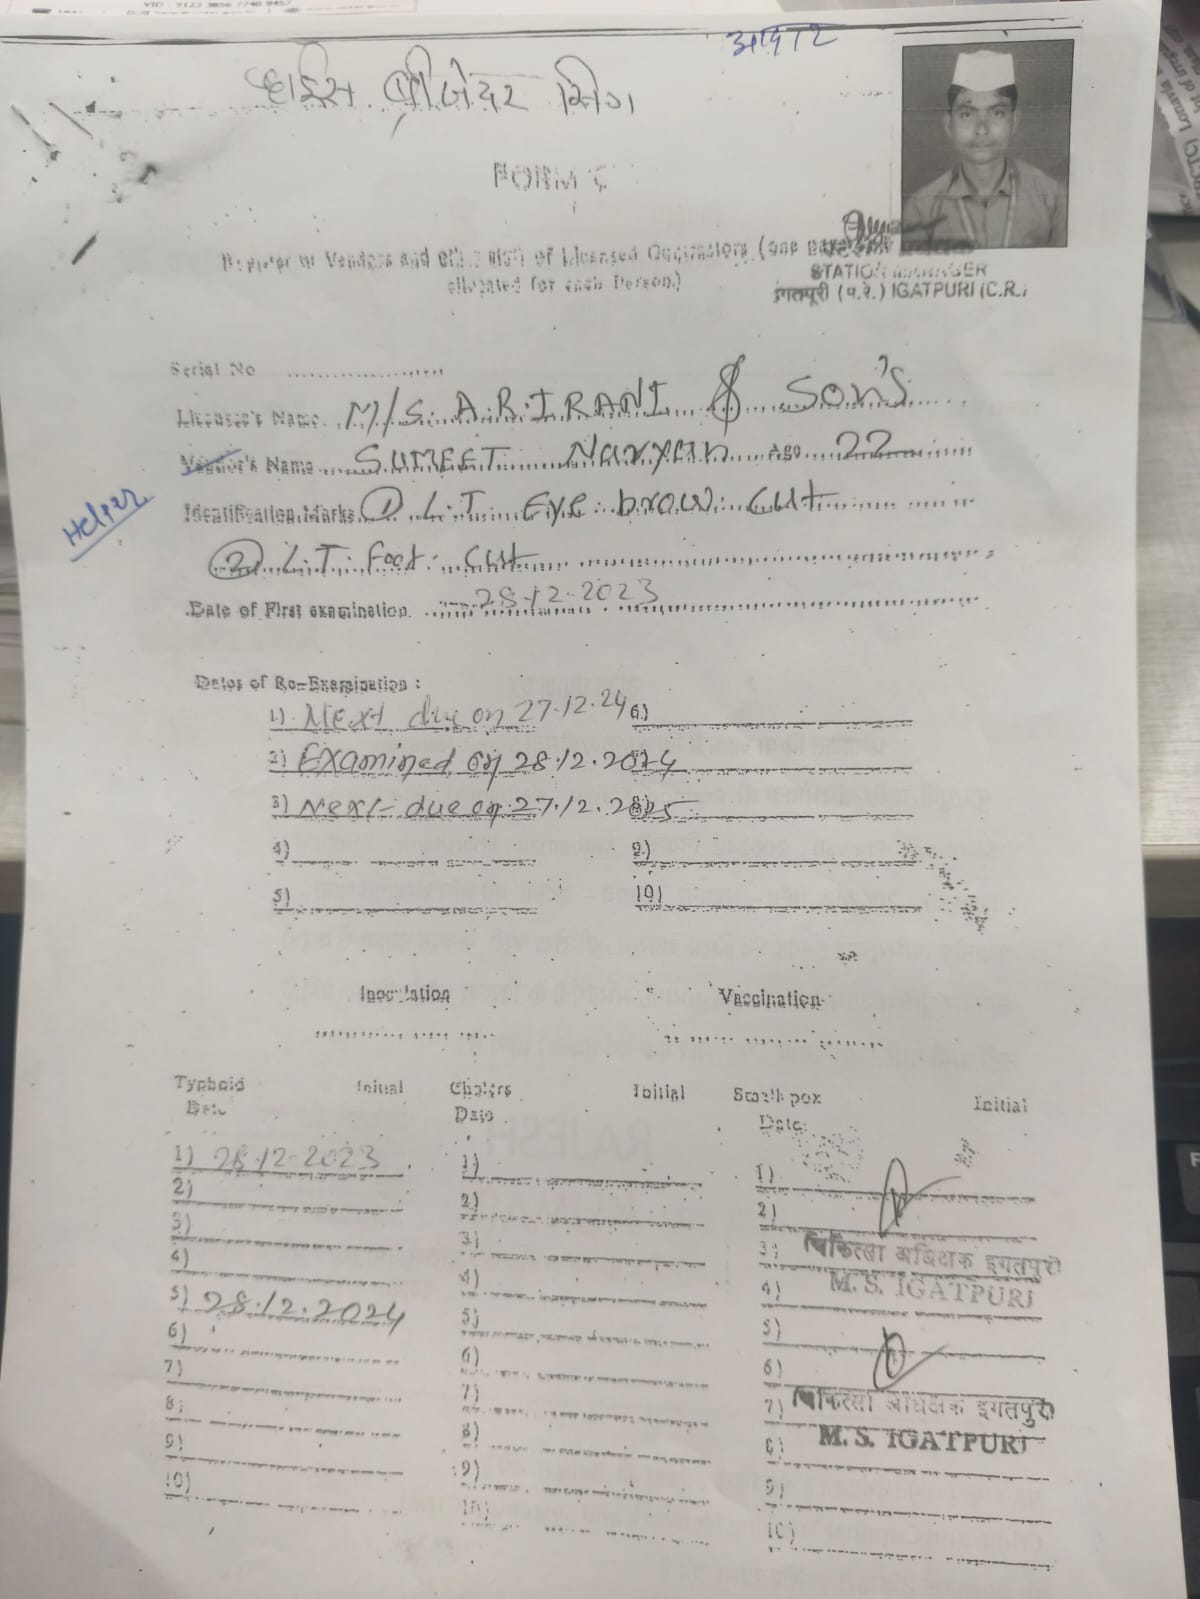 VID : 9123 3856 7740 9457
आधार
FORM C
Register of Vendors and other staff of Licensed Contractors (one page
allocated for each Person.)
STATION MANAGER
इगतपुरी (म.रे.) IGATPURI (C.R.)
Serial No ....................
Licensee's Name. M/S. A.R. IRANI & SON'S
Vendor's Name SUMEET Naryan Age 22
Helper
Identification Marks ① L.T. Eye brow cut
② L.T. Foot. Cut
Date of First examination. 28.12.2023
Dates of Re-Examination :
1) Next due on 27.12.24 6)
2) Examined on 28.12.2024
3) Next due on 27.12.2025 8)
4) 9)
5) 10)
Inoculation Vaccination
Typhoid Initial Cholera Initial Small pox Initial
Date Date Date
1) 28.12.2023 1) 1)
2) 2) 2)
3) 3) 3) चिकित्सा अधिक्षक इगतपुरी
4) 4) 4) M. S. IGATPURI
5) 28.12.2024 5) 5)
6) 6) 6)
7) 7) 7) चिकित्सा अधिक्षक इगतपुरी
8) 8) 8) M. S. IGATPURI
9) 9) 9)
10) 10) 10)